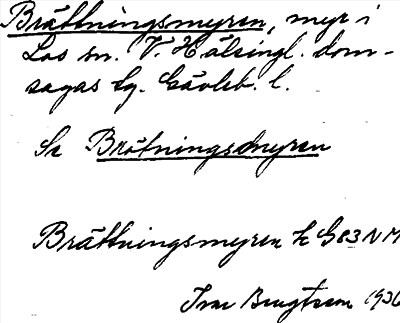 Brättningsmyren, myr i
Los sn. V. Hälsingl. dom-
sagas tg. Gävleb. l.
Se Brötningsmyren
Brättningsmyren k G83NM
Ivar Bengtsson 1936